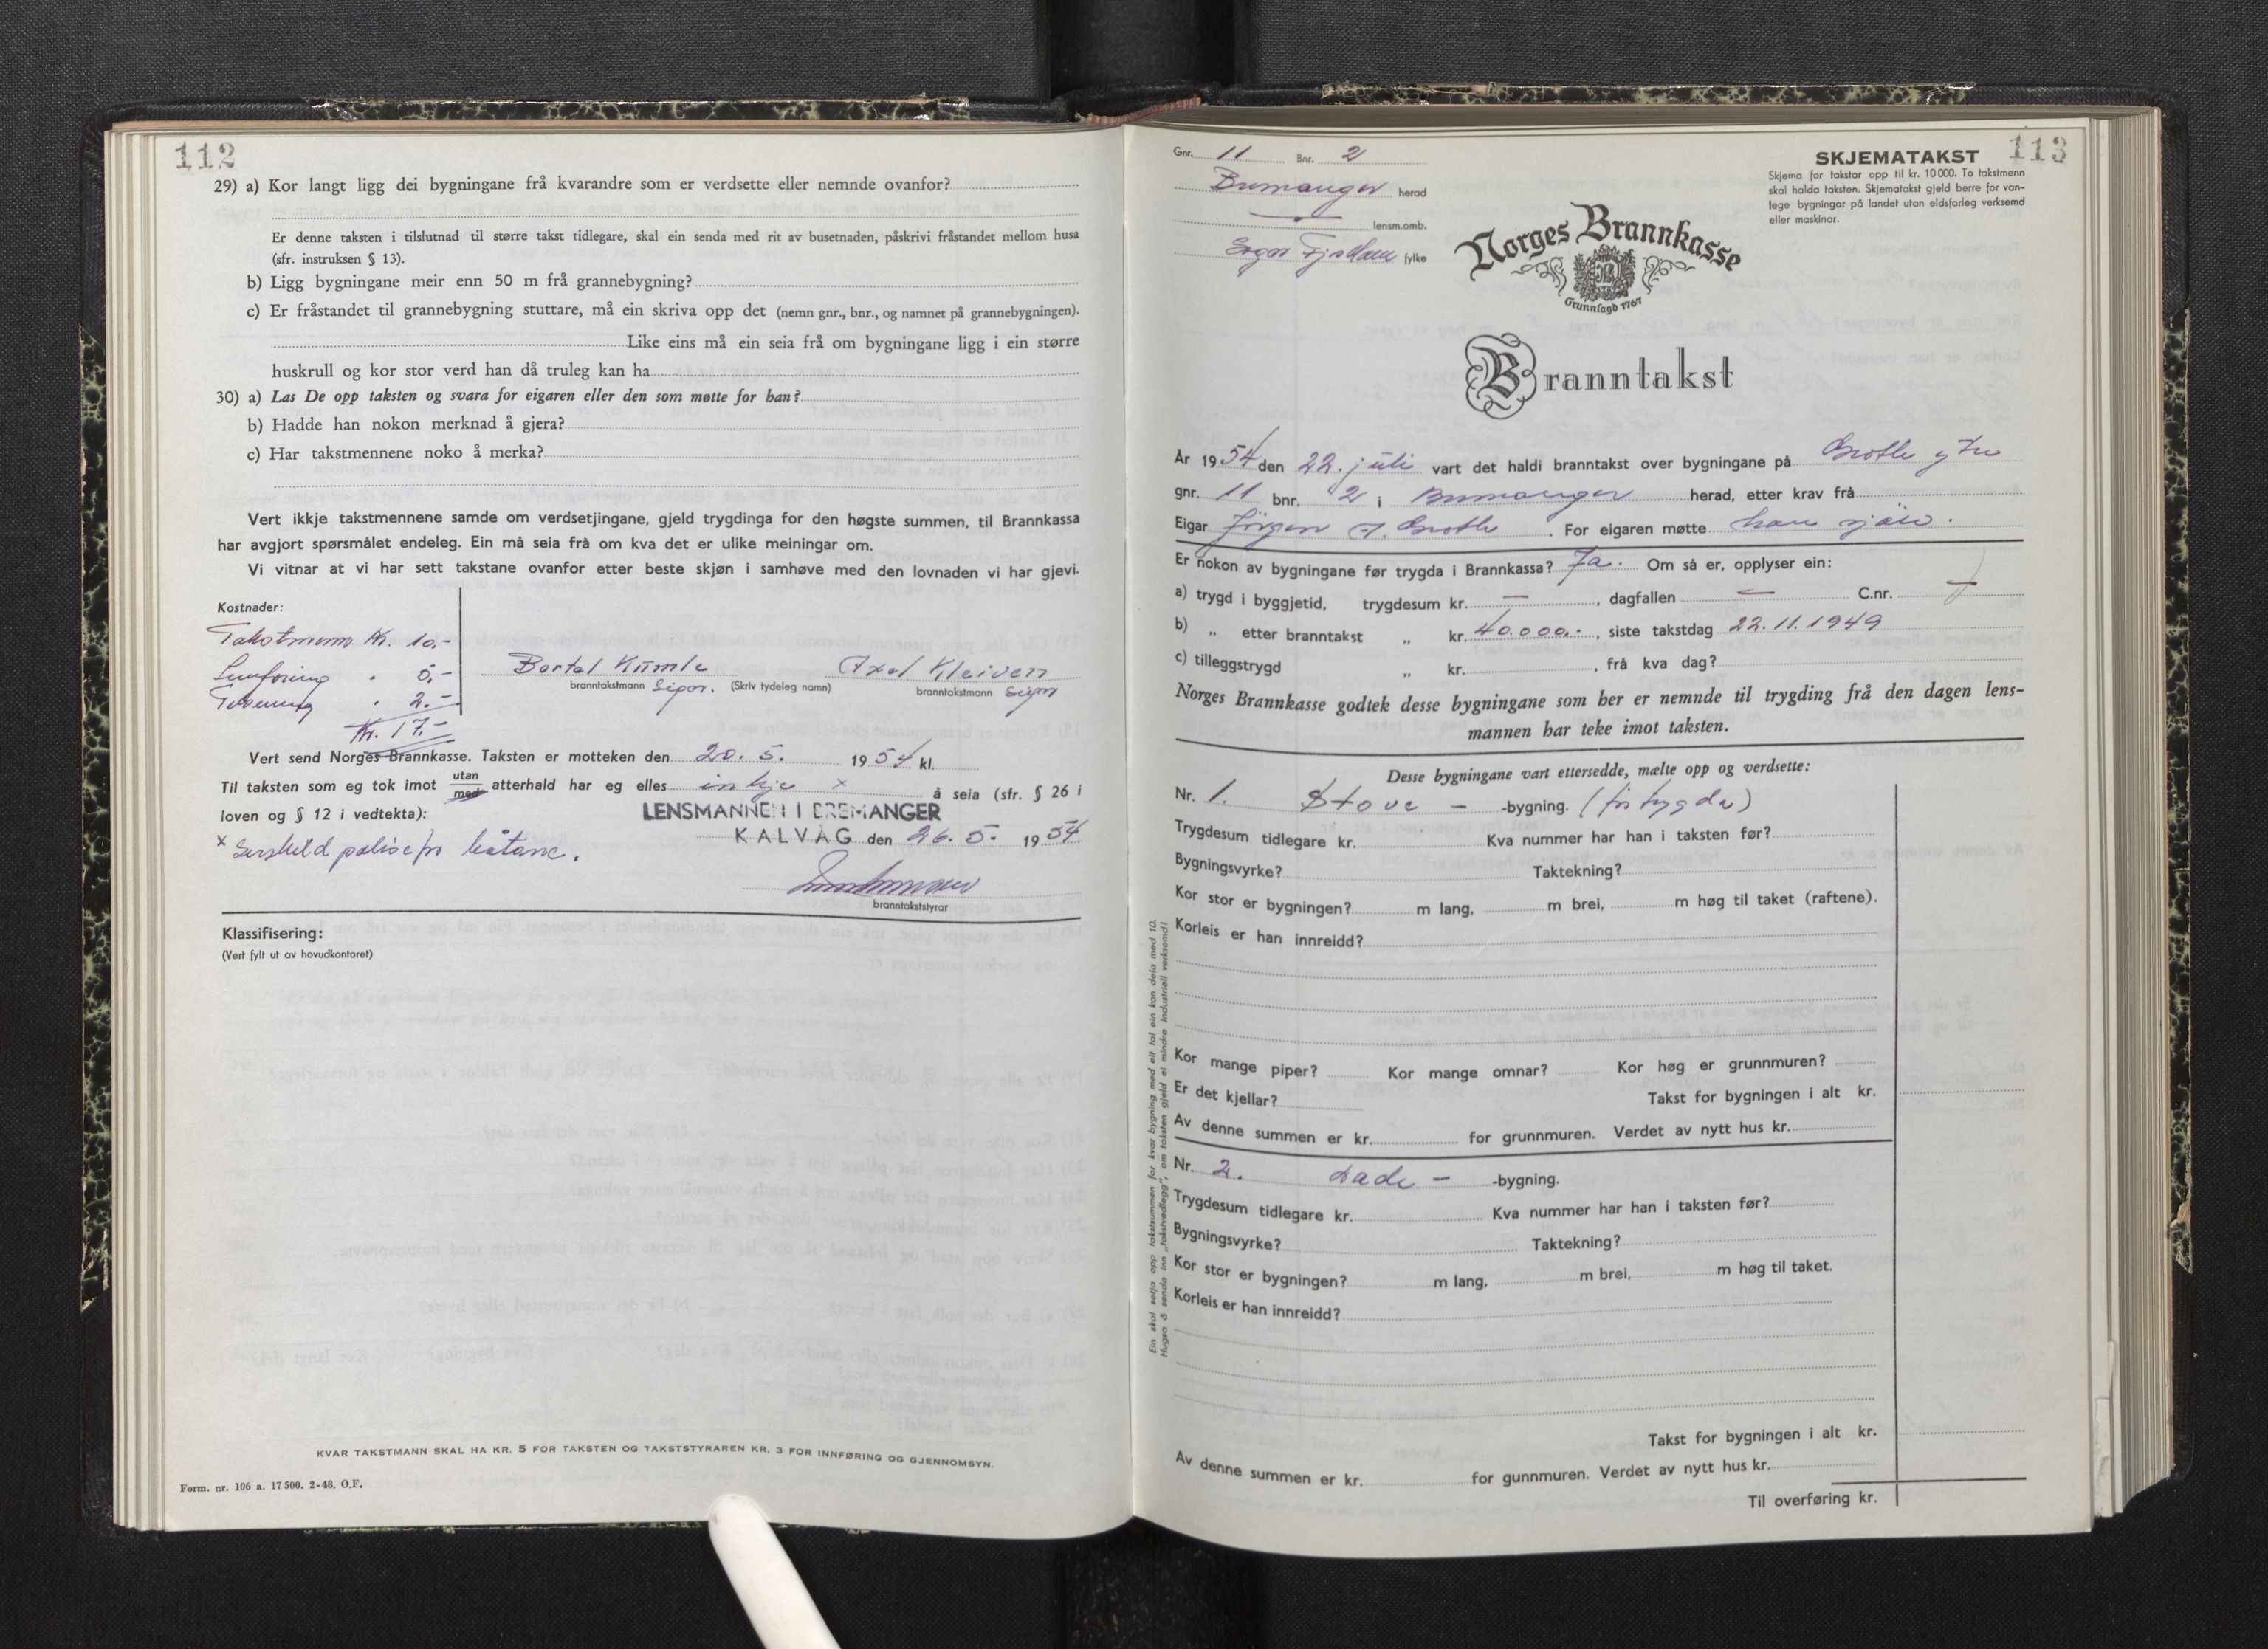 112
29) a) Kor langt ligg dei bygningane frå kvarandre som er verdsette eller nemnde ovanfor?
Er denne taksten i tilslutnad til større takst tidlegare, skal ein senda med rit av busetnaden, påskrivi fråstandet mellom husa
(sfr. instruksen § 13).
b) Ligg bygningane meir enn 50 m frå grannebygning?
c) Er fråstandet til grannebygning stuttare, må ein skriva opp det (nemn gnr., bnr., og namnet på grannebygningen).
Like eins må ein seia frå om bygningane ligg i ein større
huskrull og kor stor verd han då truleg kan ha
30) a) Las De opp taksten og svara for eigaren eller den som møtte for han?
b) Hadde han nokon merknad å gjera?
c) Har takstmennene noko å merka?
Vert ikkje takstmennene samde om verdsetjingane, gjeld trygdinga for den høgste summen, til Brannkassa
har avgjort spørsmålet endeleg. Ein må seia frå om kva det er ulike meiningar om.
Vi vitnar at vi har sett takstane ovanfor etter beste skjøn i samhøve med den lovnaden vi har gjevi.
Kostnader:
Takstmenn kr. 10,-
" 5,-
" 2.-
Kr. 17.-
Bertel Kumle Axel Kleiven
branntakstmann Sign. (Skriv tydeleg namn) branntakstmann Sign
Vert send Norges Brannkasse. Taksten er motteken den 20. 5. 1954 kl.
Til taksten som eg tok imot utan med atterhald har eg elles inkje x å seia (sfr. § 26 i
loven og § 12 i vedtekta):
LENSMANNEN I BREMANGER
KALVÅG den 26. 5. 1954
x Serskild polise for låtane.
branntakststyrar
Klassifisering:
(Vert fylt ut av hovudkontoret)
KVAR TAKSTMANN SKAL HA KR. 5 FOR TAKSTEN OG TAKSTSTYRAREN KR. 3 FOR INNFØRING OG GJENNOMSYN.
Form. nr. 106 a. 17 500. 2-48. O.F.
113
Gnr. 11 Bnr. 2
Bremanger herad
— lensm.omb.
Sogn Fjordane fylke
SKJEMATAKST
Skjema for takstar opp til kr. 10 000. To takstmenn
skal halda taksten. Skjematakst gjeld berre for van-
lege bygningar på landet utan eldsfarleg verksemd
eller maskinar.
Norges Brannkasse
Grunnlagd 1767
Branntakst
År 1954 den 22. juli vart det haldi branntakst over bygningane på Grotle ytre
gnr. 11 bnr. 2 i Bremanger herad, etter krav frå
Eigar Jörgen A. Grotle. For eigaren møtte han sjølv.
Er nokon av bygningane før trygda i Brannkassa? Ja. Om så er, opplyser ein:
a) trygd i byggjetid, trygdesum kr. —, dagfallen — C.nr. —
b) „ etter branntakst „ kr. 40.000.-, siste takstdag 22. 11. 1949
c) tilleggstrygd „ kr. , frå kva dag?
Norges Brannkasse godtek desse bygningane som her er nemnde til trygding frå den dagen lens-
mannen har teke imot taksten.
Desse bygningane vart ettersedde, mælte opp og verdsette:
Nr. 1. Stove - -bygning. (før trygda)
Trygdesum tidlegare kr. Kva nummer har han i taksten før?
Bygningsvyrke? Taktekning?
Kor stor er bygningen? m lang, m brei, m høg til taket (raftene).
Korleis er han innreidd?
Kor mange piper? Kor mange omnar? Kor høg er grunnmuren?
Er det kjellar? Takst for bygningen i alt kr.
Av denne summen er kr. for grunnmuren. Verdet av nytt hus kr.
Nr. 2. Løde - -bygning.
Trygdesum tidlegare kr. Kva nummer har han i taksten før?
Bygningsvyrke? Taktekning?
Kor stor er bygningen? m lang, m brei, m høg til taket.
Korleis er han innreidd?
Takst for bygningen i alt kr.
Av denne summen er kr. for gunnmuren. Verdet av nytt hus kr.
Til overføring kr.
Ein skal setja opp takstsummen for kvar bygning med eit tal ein kan dela med 10.
Hugsa å senda inn „takstvedlegg", om taksten gjeld ei mindre industriell verksemd!